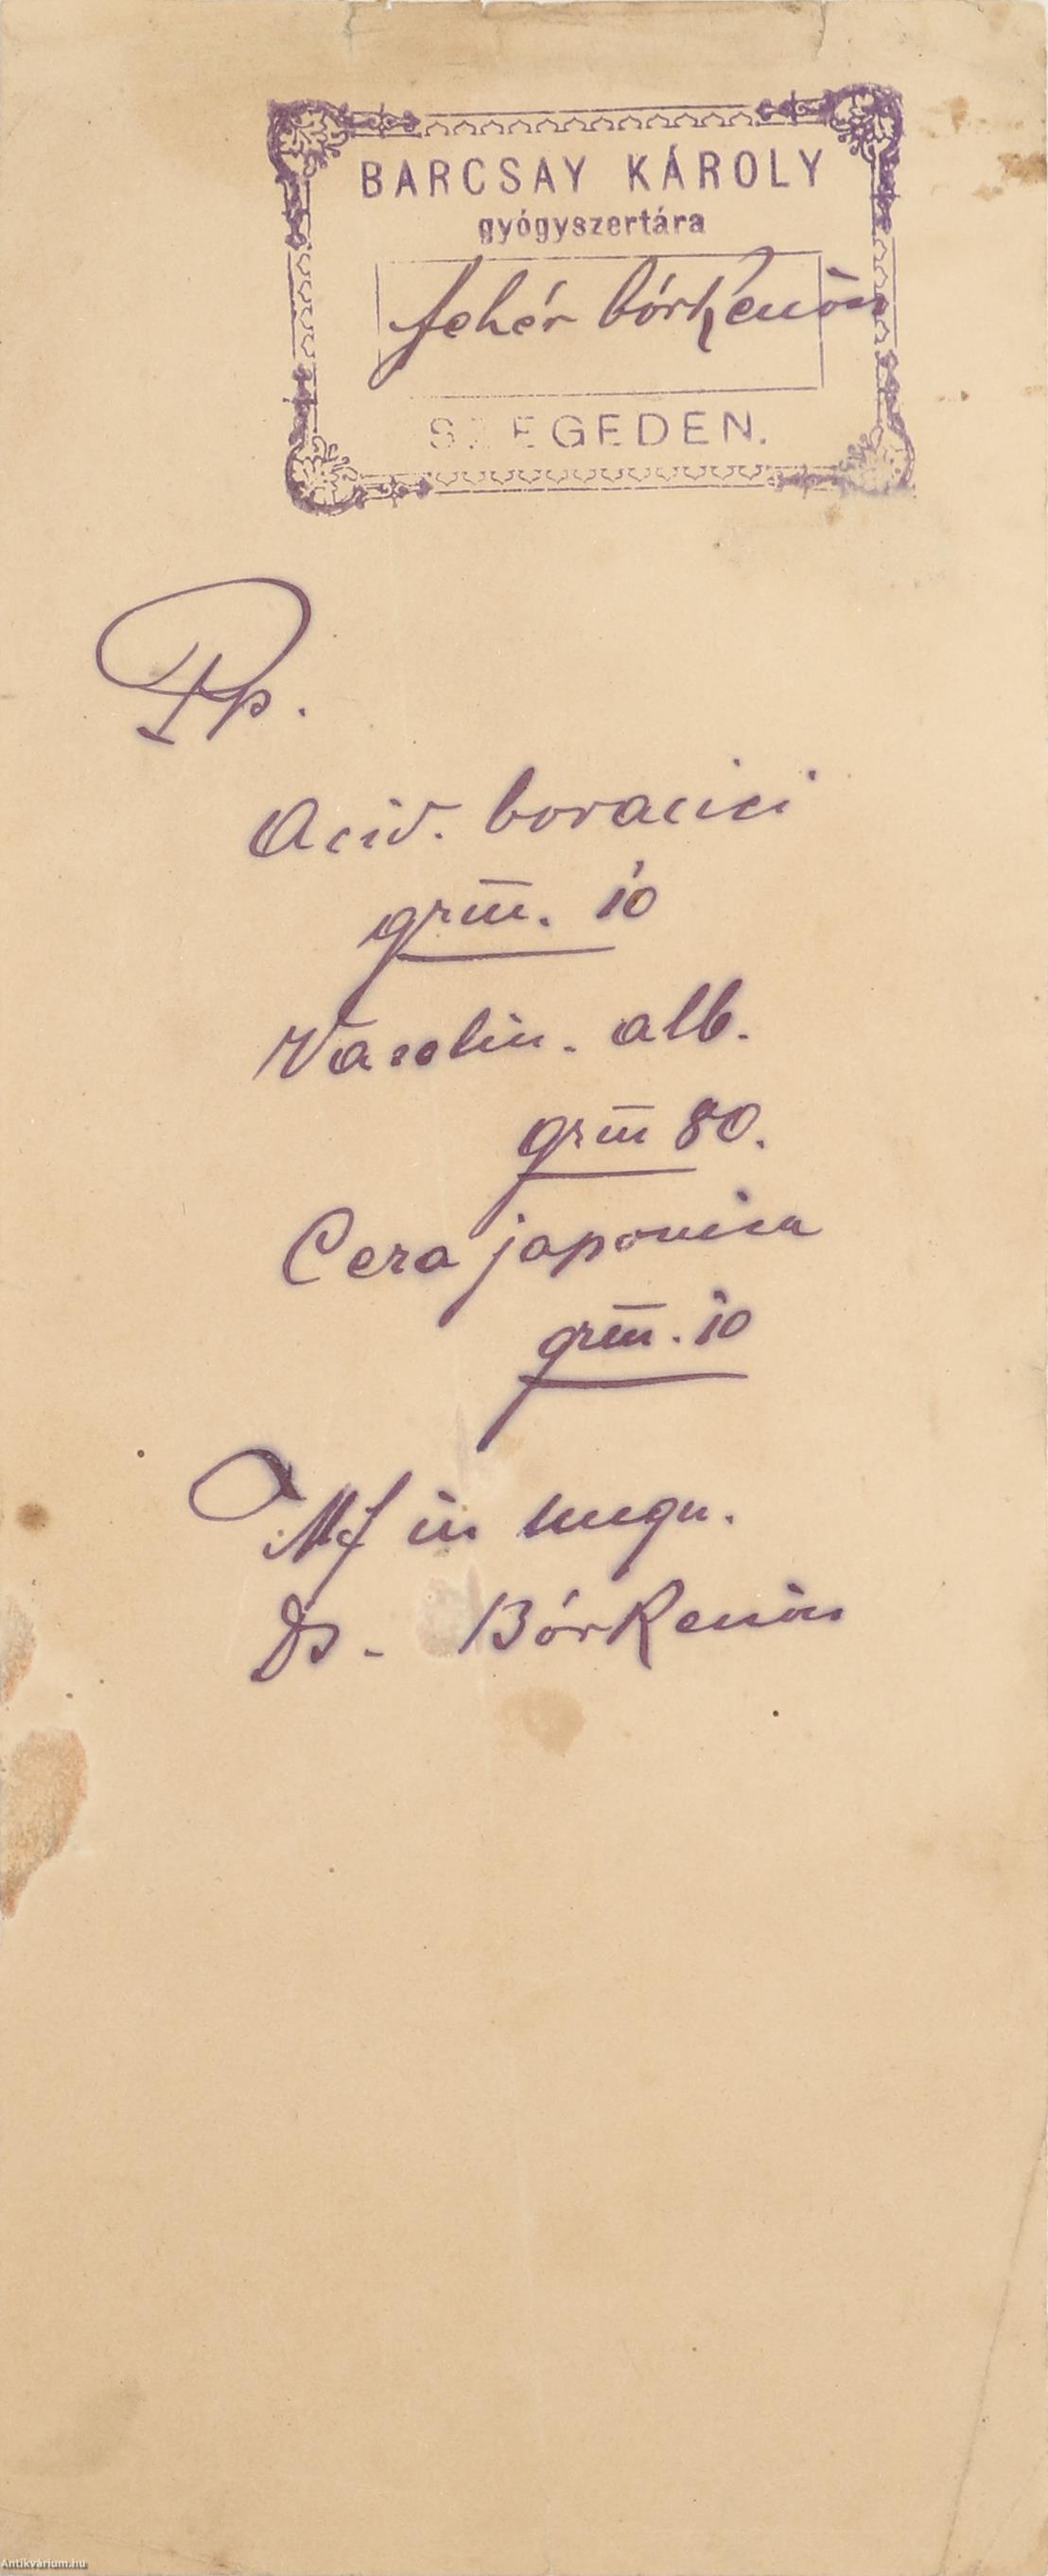 BARCSAY KÁROLY
gyógyszertára
fehér bórkenőcs
SZEGEDEN.
Rp.
Acid. boracici
grm. 10
Vaselin. alb.
grm 80.
Cera japonica
grm. 10
Mf in ungu.
Ds. Bórkenőcs
Antikvárium.hu